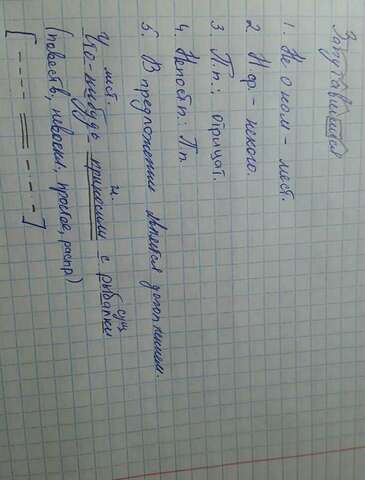 1. Не о ком - мест.
2 Н.ф. - некого.
3. П.п.: отрицат.
4. Непост п: П.п.
5. В предложении является дополнением.
мест. и. сущ
Что-нибудь приносили с рыбалки
(повеств, невоскл, простое, распр)